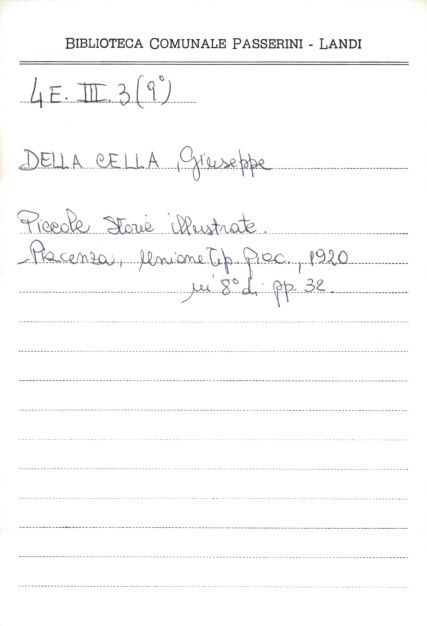 BIBLIOTECA COMUNALE PASSERINI - LANDI
4E. III. 3 (9°)
DELLA CELLA, Giuseppe
Piccole storie illustrate.
Piacenza, Unione Tip. Piac., 1920
in 8° di pp. 32.